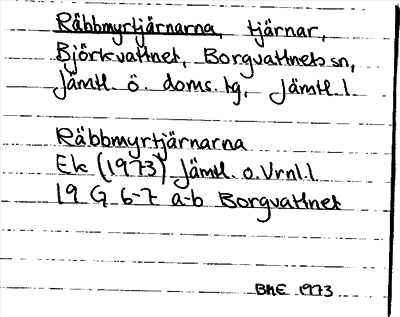 Räbbmyrtjärnarna, tjärnar,
Björkvattnet, Borgvattnets sn,
Jämtl. ö. doms. tg, Jämtl. l.
Räbbmyrtjärnarna
Ek (1973) Jämtl. o. Vrnl. l
19 G 6-7 a-b Borgvattnet
BhE 1973